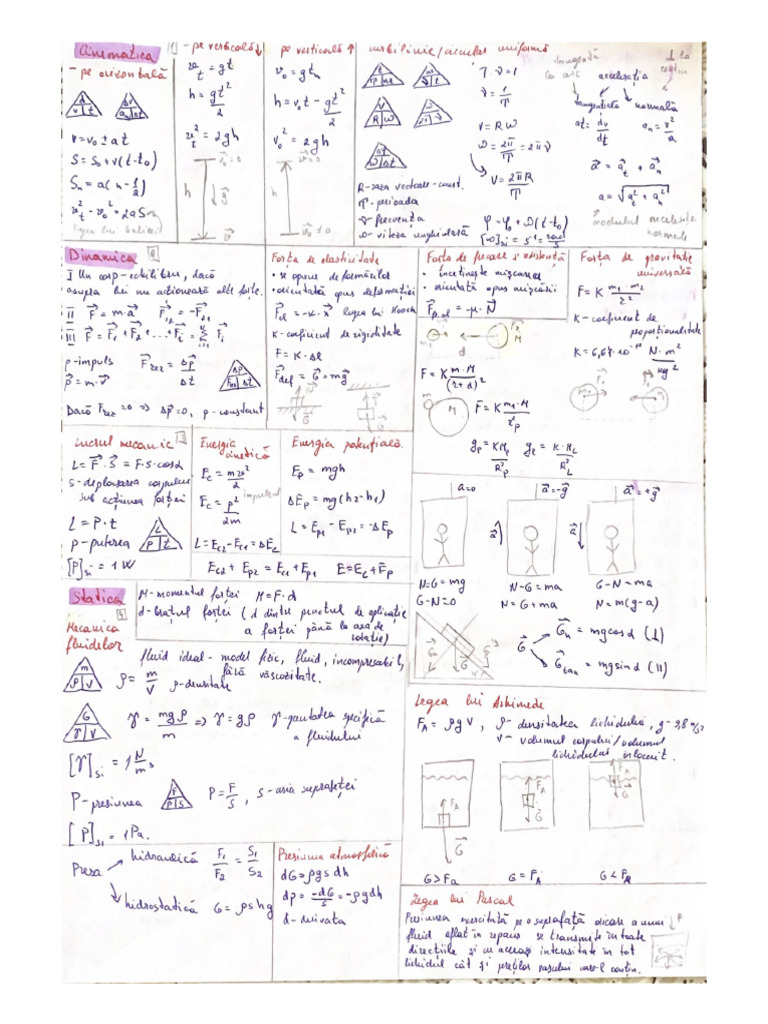 Cinematica 1
- pe orizontală
d
v t
Δv
a Δt
v = v₀ ± at
S = S₀ + v(t - t₀)
Sₙ = a(n - 1/2)
v² - v₀² = 2aS
legea lui Galilei
- pe verticală ↓
vt = gt
h = gt²/2
vt² = 2gh
v₀ = 0
h
g
pe verticală ↑
v₀ = gtₙ
h = v₀t - gt²/2
v₀² = 2gh
v = 0
h
v₀ ≠ 0
curbilinie/circulară uniformă
V
R ω
T·ν = 1
ν = 1/T
V = Rω
ω = 2π/T = 2πν
V = 2πR/T
R - raza vectoare - const.
T - perioada
ν - frecvența
ω - viteza unghiulară
φ = φ₀ + ω(t - t₀)
accelerația
tangențială normală
at = dv/dt aₙ = v²/r
a = at + aₙ
a = √(at² + aₙ²)
modulul accelerației
normale
Dinamica 2
I Un corp - echilibru, dacă
asupra lui nu acționează alte forțe.
II F = m·a F₁₂ = -F₂₁
III F = F₁ + F₂ + ... + Fᵢ = Σ Fᵢ
p - impuls Frez = Δp/Δt
p = m·v
Δp
Frez Δt
Dacă Frez = 0 => Δp = 0, p - constant
Forța de elasticitate
• se opune deformărilor
• orientată opus deformației
Fel = -k·x legea lui Hooke
K - coeficient de rigiditate
F = K·Δl
Fdef = G = mg
N
G
Forța de frecare și rezistență
• încetinește mișcarea
• orientată opus mișcării
Fp.al = -μ·N
M
d
F = K m·M/(r+d)²
M
F = K m₁·M/r²p
gp = KMp/R²p gL = K·ML/R²L
Forța de gravitate
universală
F = K m₁·m₂/r²
K - coeficient de
proporționalitate
K = 6,67·10⁻¹¹ N·m²/kg²
Lucrul mecanic 3
L = F·S = F·s·cosα
S - deplasarea corpului
sub acțiunea forței
L = P·t
P - puterea
L
P t
[P]si = 1W
Energia
cinetică
Ec = mv²/2
Ec = p²/2m impulsul
L = Ec2 - Ec1 = ΔEc
Energia potențială
Ep = mgh
ΔEp = mg(h₂ - h₁)
L = Ep1 - Ep2 = -ΔEp
Ec2 + Ep2 = Ec1 + Ep1 E = Ec + Ep
a = 0
a = -g
a = +g
N = G = mg
G - N = 0
N - G = ma
N = G + ma
G - N = ma
N = m(g - a)
G
Gn = mg cosα (⊥)
Gtan = mg sinα (||)
Statica 4
M - momentul forței M = F·d
d - brațul forței (d dintre punctul de aplicație
a forței până la axa de
rotație)
Mecanica
fluidelor
fluid ideal - model fizic, fluid, incompresibil,
fără vâscozitate.
m
ρ V
ρ = m/V ρ - densitate
G
γ V
γ = mgρ/m => γ = gρ γ - greutatea specifică
a fluidului
[γ]si = 1 N/m³
P - presiunea
F
P S
P = F/S, S - aria suprafeței
[P]si = 1Pa.
Presa hidraulică F₁/F₂ = S₁/S₂
hidrostatică G = ρshg
Presiunea atmosferică
dG = ρgsdh
dp = -dG/s = -ρgdh
d - derivata
Legea lui Arhimede
FA = ρgV, ρ - densitatea lichidului, g - 9,8 m/s²
V - volumul corpului/volumul
lichidului înlocuit.
FA
G
FA
G
FA
G
G > Fa
G = FA
G < FA
Legea lui Pascal
Presiunea exercitată pe o suprafață oricare a unui
fluid aflat în repaus se transmite în toate
direcțiile și cu aceeași intensitate în tot
lichidul cât și pereților vasului care-l conțin.
P